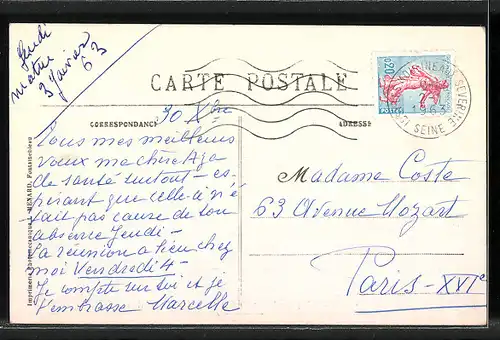 Jeudi
matin
3 Janvier
63
CARTE POSTALE
CORRESPONDANCE
ADRESSE
0,20
1963
SEINE
30 Xbre
Tous mes meilleurs
voeux ma chère Aga
de santé surtout - es-
pérant que celle-là n'é-
tait pas cause de ton
absence Jeudi -
La réunion a lieu chez
moi Vendredi 4 -
Je compte sur toi et je
t'embrasse Marcelle
Madame Coste
63 Avenue Mozart
Paris - XVIe
MENARD, Fontainebleau